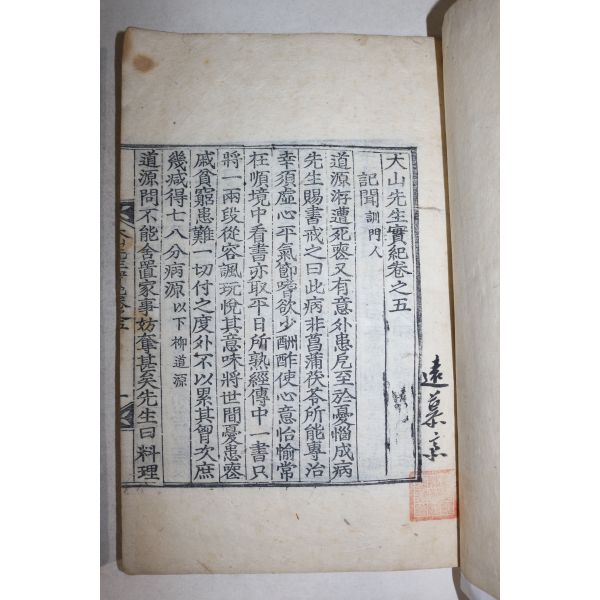 大山先生實紀卷之五
記聞 訓門人
道源洊遭死喪又有意外患戹至於憂惱成病
先生賜書戒之曰此病非菖蒲茯苓所能專治
幸須虛心平氣節嗜欲少酬酢使心意怡愉常
在順境中看書亦取平日所熟經傳中一書只
將一兩段從容諷玩悅其意味將世間憂患喪
戚貧窮患難一切付之度外不以累其胷次庶
幾减得七八分病源 以下柳道源
道源問不能舍置家事妨奪甚矣先生曰料理
遠慕亭